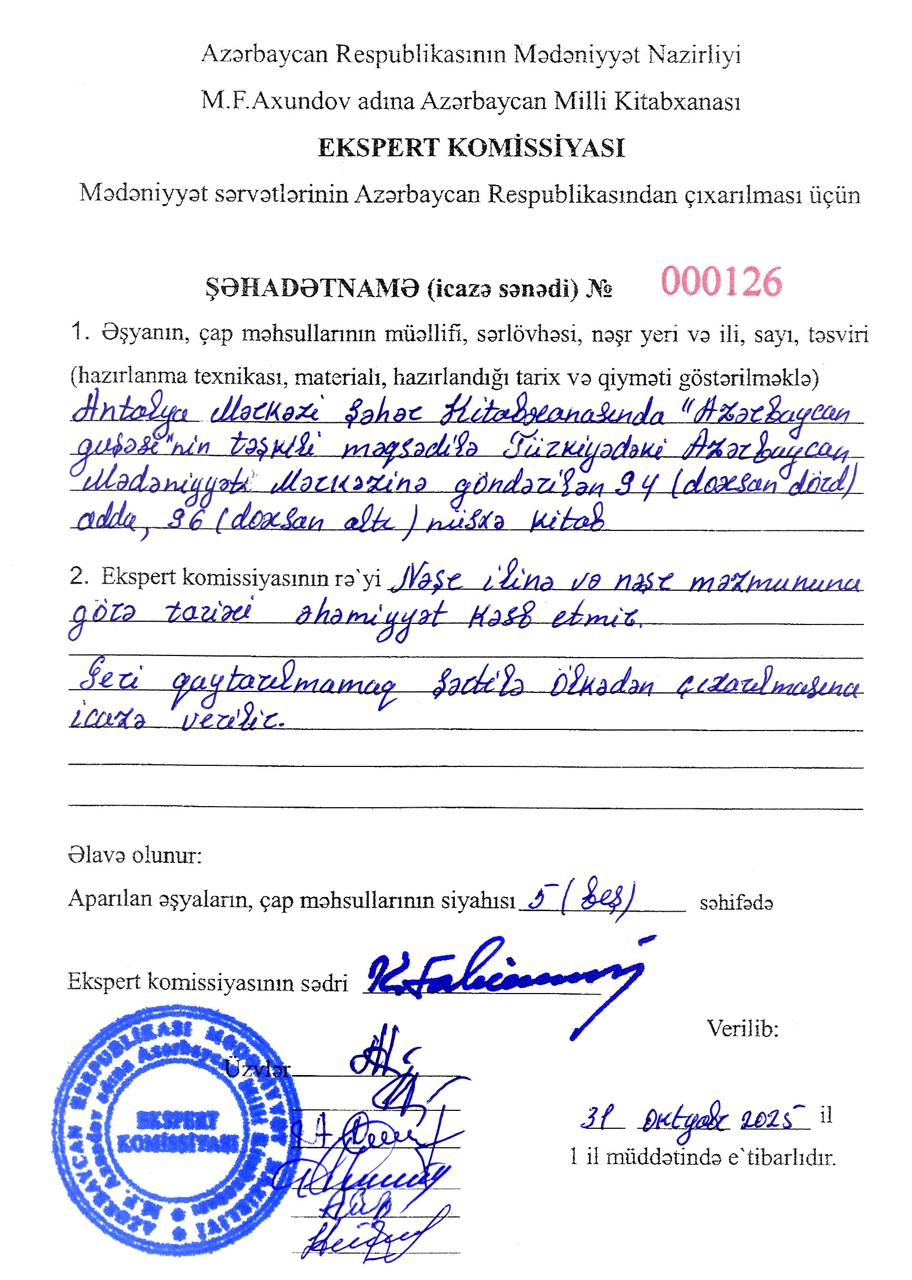 Azərbaycan Respublikasının Mədəniyyət Nazirliyi
M.F.Axundov adına Azərbaycan Milli Kitabxanası
EKSPERT KOMİSSİYASI
Mədəniyyət sərvətlərinin Azərbaycan Respublikasından çıxarılması üçün
ŞƏHADƏTNAMƏ (icazə sənədi) № 000126
1. Əşyanın, çap məhsullarının müəllifi, sərlövhəsi, nəşr yeri və ili, sayı, təsviri
(hazırlanma texnikası, materialı, hazırlandığı tarix və qiyməti göstərilməklə)
Antalya Mərkəzi Şəhər Kitabxanasında "Azərbaycan
guşəsi"nin təşkili məqsədilə Türkiyədəki Azərbaycan
Mədəniyyəti Mərkəzinə göndərilən 94 (doxsan dörd)
adda, 96 (doxsan altı) nüsxə kitab
2. Ekspert komissiyasının rə`yi Nəşr ilinə və nəşr məzmununa
görə tarixi əhəmiyyət kəsb etmir.
Geri qaytarılmamaq şərtilə ölkədən çıxarılmasına
icazə verilir.
Əlavə olunur:
Aparılan əşyaların, çap məhsullarının siyahısı 5 (beş) səhifədə
Ekspert komissiyasının sədri
Verilib:
Üzvlər
31 oktyabr 2025 il
1 il müddətində e`tibarlıdır.
AZƏRBAYCAN RESPUBLİKASI MƏDƏNİYYƏT NAZİRLİYİ
M.F. Axundov adına Azərbaycan Milli Kitabxanası
EKSPERT
KOMİSSİYASI